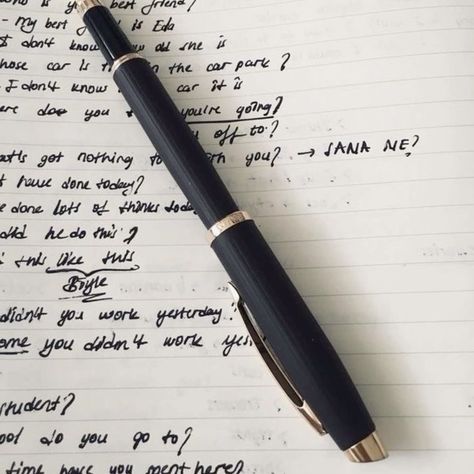 is your best friend?
- My best friend is Eda
I don't know how old she is
whose car is the car park?
I don't know car it is
do you you're going?
off to?
got nothing to you? → SANA NE?
have done today?
done lots of thinks today
did he do this?
this like this
Böyle
didn't you work yesterday?
you didn't work
student?
do you go to?
time have you here?